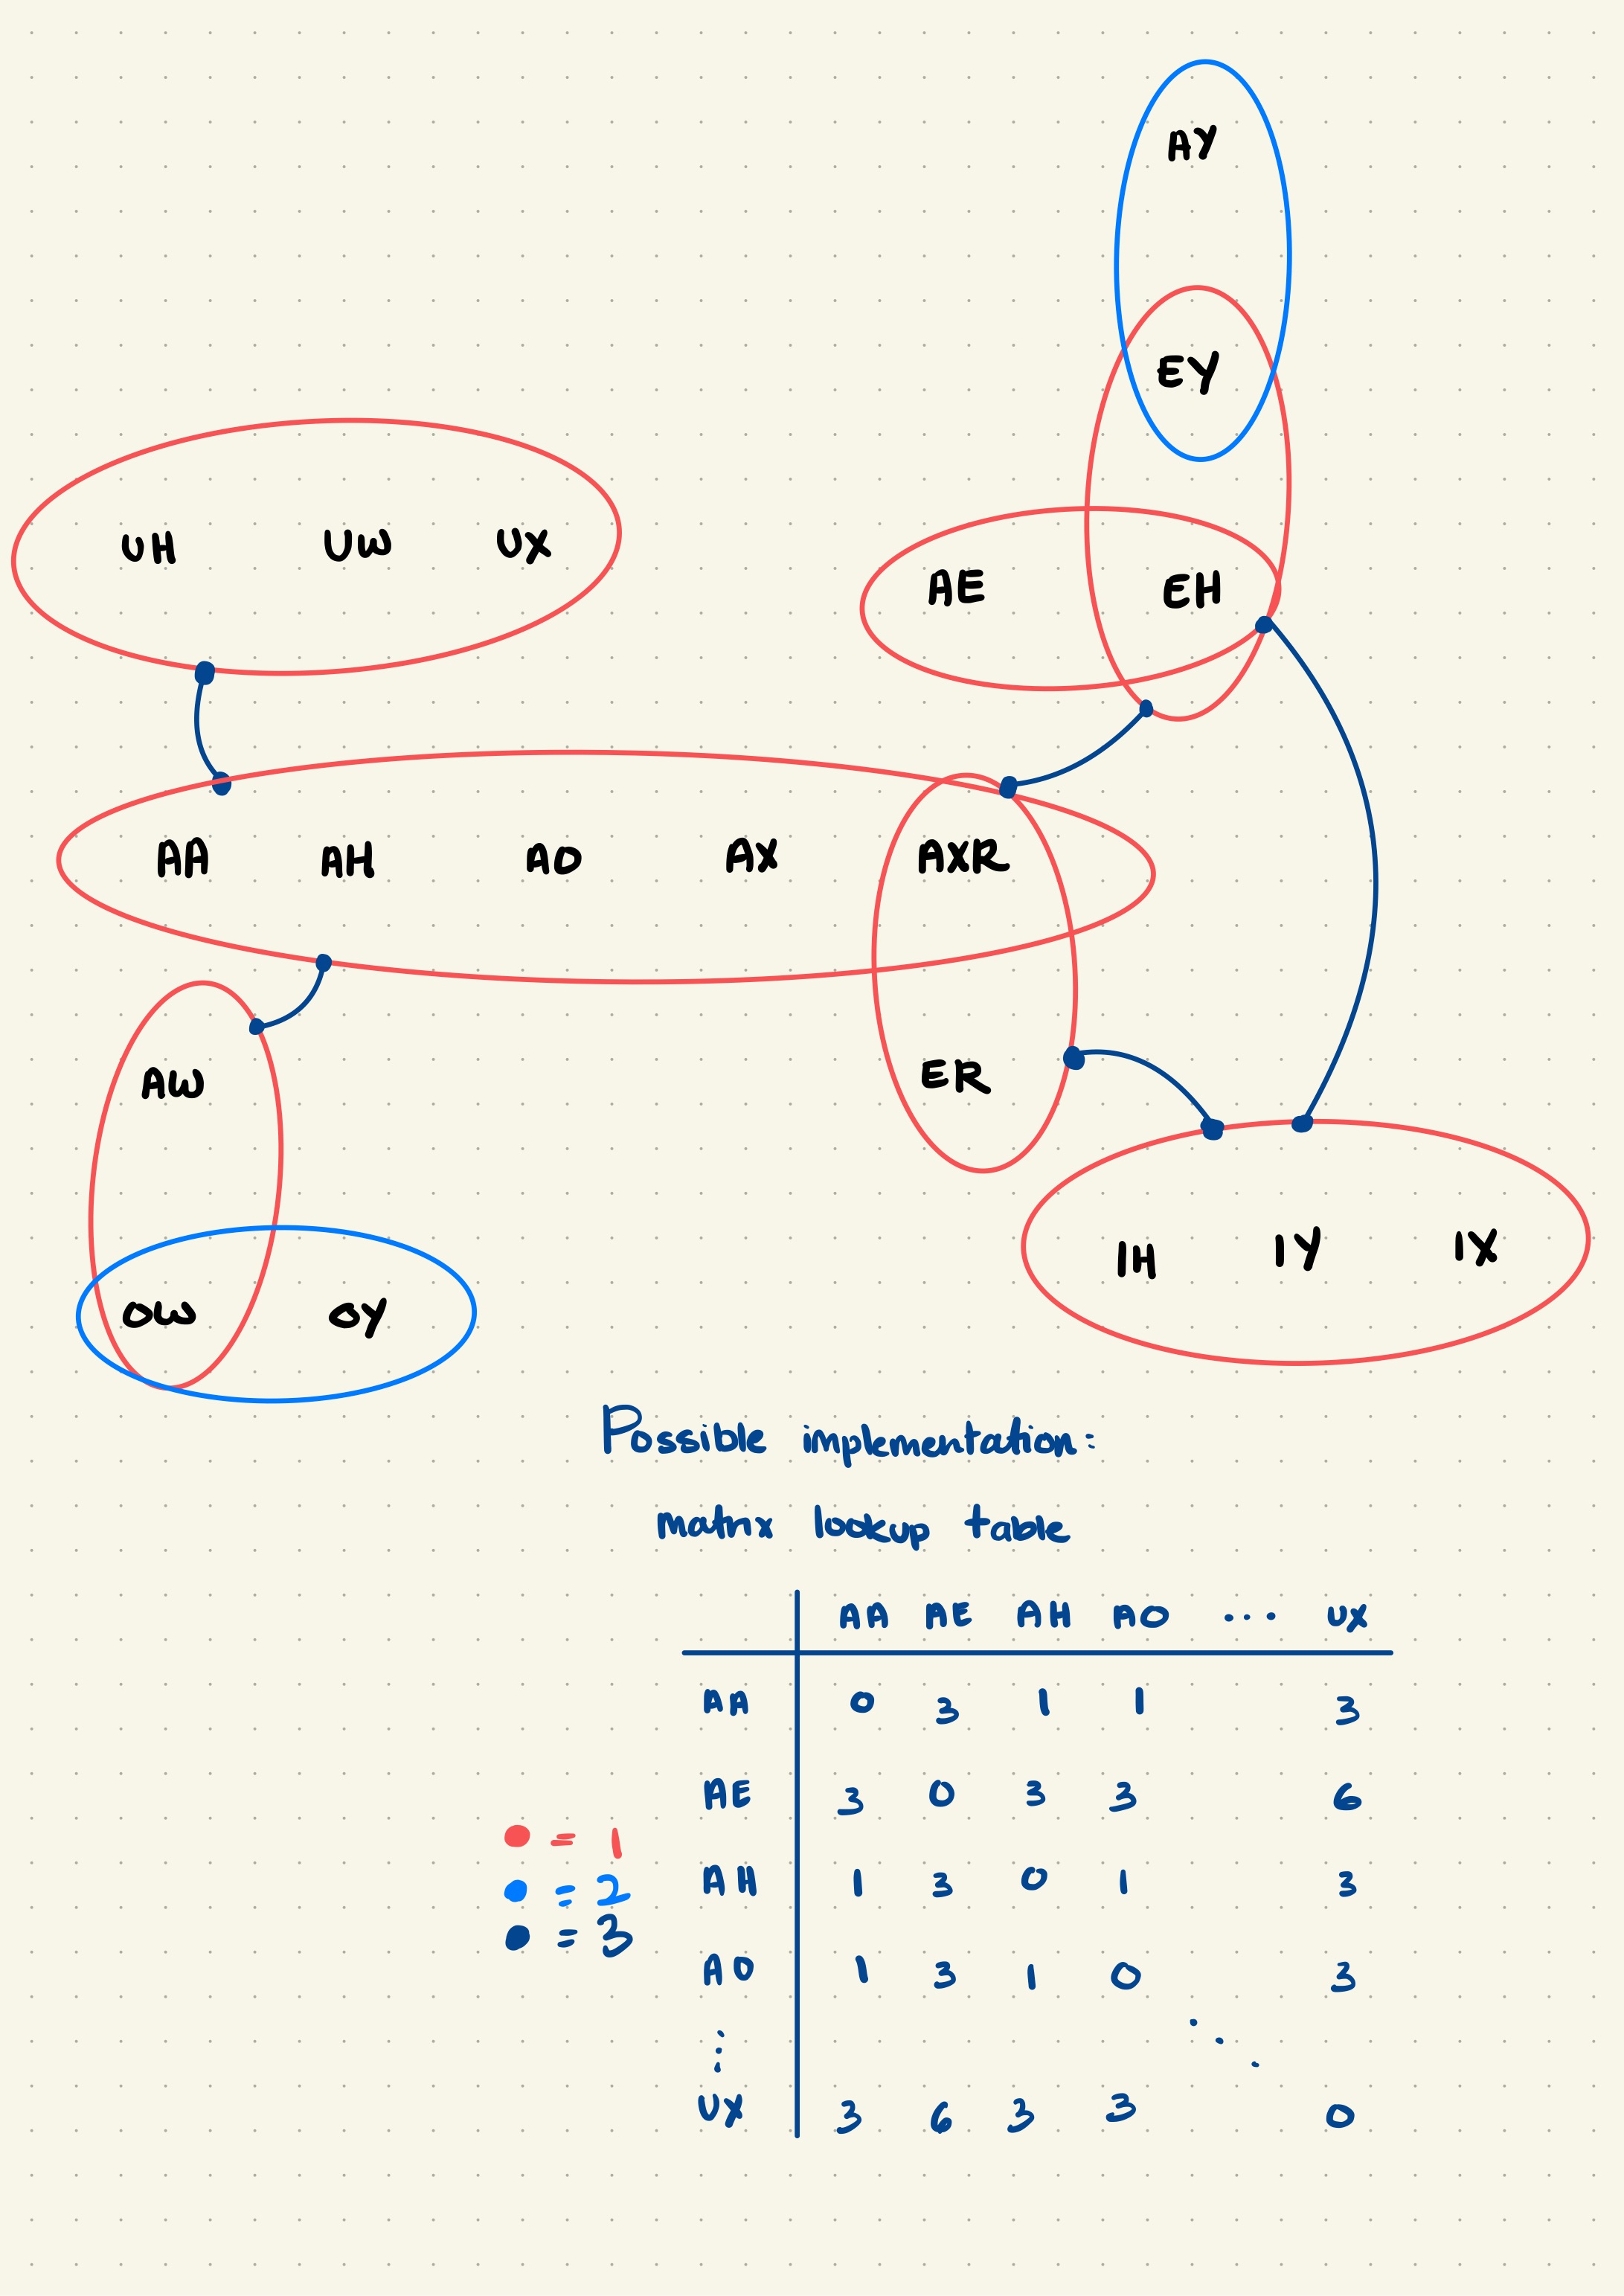 AY
EY
UH UW UX
AE EH
AA AH AO AX AXR
AW
ER
IH IY IX
OW OY
Possible implementation:
matrix lookup table
AA AE AH AO ... UX
AA 0 3 1 1 3
AE 3 0 3 3 6
AH 1 3 0 1 3
AO 1 3 1 0 3
UX 3 6 3 3 0
= 1
= 2
= 3